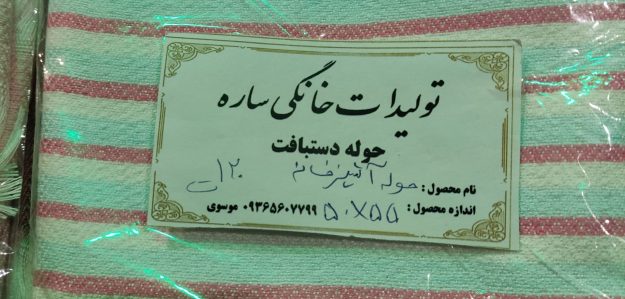 تولیدات خانگی ساره
حوله دستبافت
نام محصول: حوله آشپزخانه ۱۲۰ت
اندازه محصول: ۵۰X۵۵ ۰۹۳۶۵۶۰۷۷۹۹ موسوی